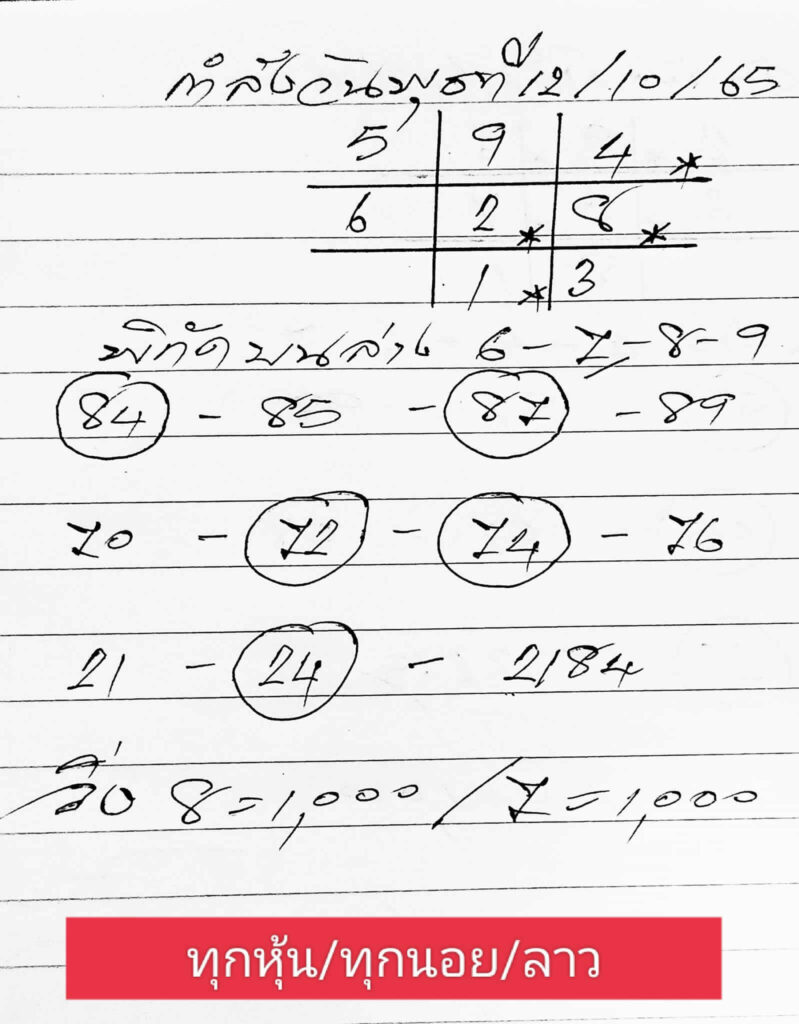 กำลังวันพุธที่ 12/10/65
5 9 4 *
6 2 * 8 *
1 * 3
พิทัดบนล่าง 6-7-8-9
84 - 85 - 87 - 89
70 - 72 - 74 - 76
21 - 24 - 2184
วิ่ง 8=1,000/7=1,000
ทุกหุ้น/ทุกนอย/ลาว